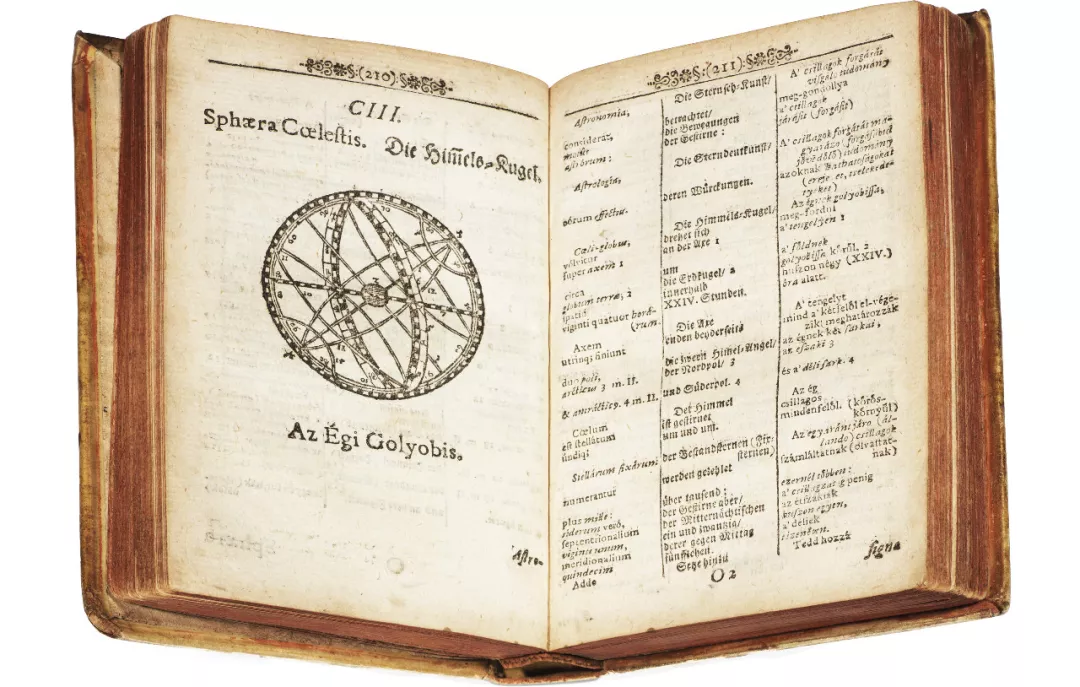 (210)
CIII.
Sphæra Cœleſtis. Die Him̄els-Kugel.
Az Égi Golyobis.
Aſtro-
(211)
Aſtronomia,
conſiderat,
aſtrorum:
Aſtrologia,
effectus.
Cœli-globus,
volvitur
ſuper axem 1
circa
globum terræ, 2
ſpatiô
viginti quatuor horâ-
(rum.
Axem
utrinq; finiunt
duo poli,
arcticus 3 m. II.
& antarcticus. 4 m. II.
Cœlum
eſt ſtellatum
undiq;
Stellarum fixarum
numerantur
plus mille:
ſiderum verò,
ſeptentrionalium
viginti unum,
meridionalium
quindecim
Adde
Die Sternſeh-Kunſt/
betrachtet/
die Bewegungen
der Geſtirne:
Die Sterndeutkunſt/
deren Würckungen.
Die Himmels-Kugel/
drehet ſich
an der Axe 1
um
die Erdkugel/ 2
innerhalb
XXIV. Stunden.
Die Axe
enden beyderſeits
die zween Himel-Angel/
der Nordpol/ 3
und Süderpol. 4
Der Himmel
iſt geſtirnet
um und um.
der Geſtandſternen (Fix-
ſternen)
werden gezehlet
über tauſend:
der Geſtirne aber/
der Mitternächtiſchen
ein und zwantzig/
derer gegen Mittag
fünffzehen.
Setze hinzu
A' csillagok forgáſát
viſgálo tudomány
meg-gondollya
a' csillagok
járáſit (forgáſit)
A' csillagok forgáſát ma-
gyarázo (forgáſſibol
jövendölö) tudomány
azoknak hathatoſságokat
(erejeket, cselekede-
tyeket)
Az égnek golyobiſſa,
meg-fordul
a' tengelyen 1
a' földnek
golyobiſſa körül, 2
huſzon négy (XXIV.)
óra alatt.
A' tengelyt
mind a' két felöl el-vége-
zik; meghatározzák
az égnek két ſarkai,
az éſzaki 3
és a' déli ſark. 4
Az ég
csillagos
mindenfelöl. (körös-
környül)
Az egy aránt járo (ál-
lando) csillagok
ſzámláltatnak (olvaſtat-
nak)
ezernél többen:
a' csillagzatig penig
az éſzakiak
huſzon egyen,
a' déliek
tizenöten.
Tedd hozzá
O 2
ſigna